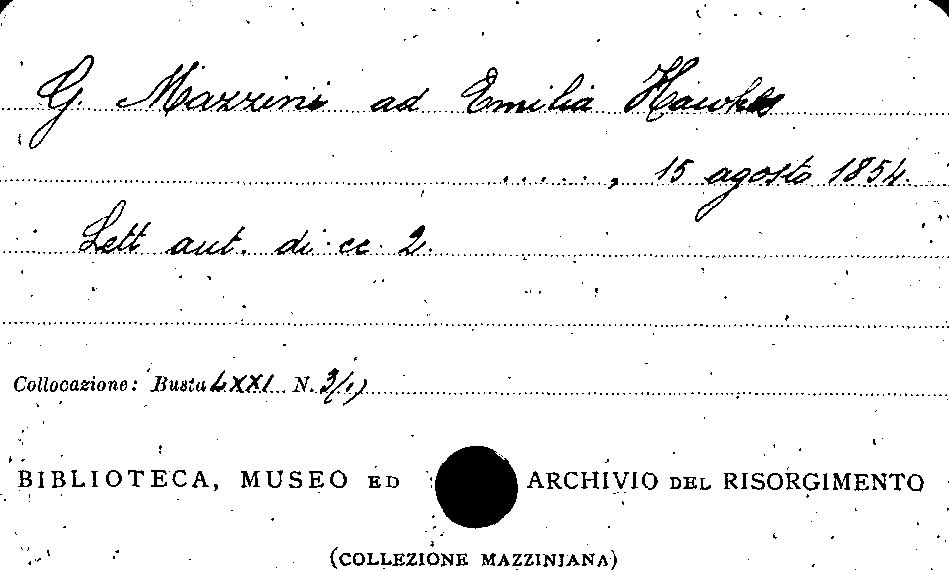 G. Mazzini ad Emilia Hawkes
....., 15 agosto 1854.
Lett aut. di cc 2.
Collocazione: Busta LXXI N. 3/1)
BIBLIOTECA, MUSEO ED ARCHIVIO DEL RISORGIMENTO
(COLLEZIONE MAZZINIANA)